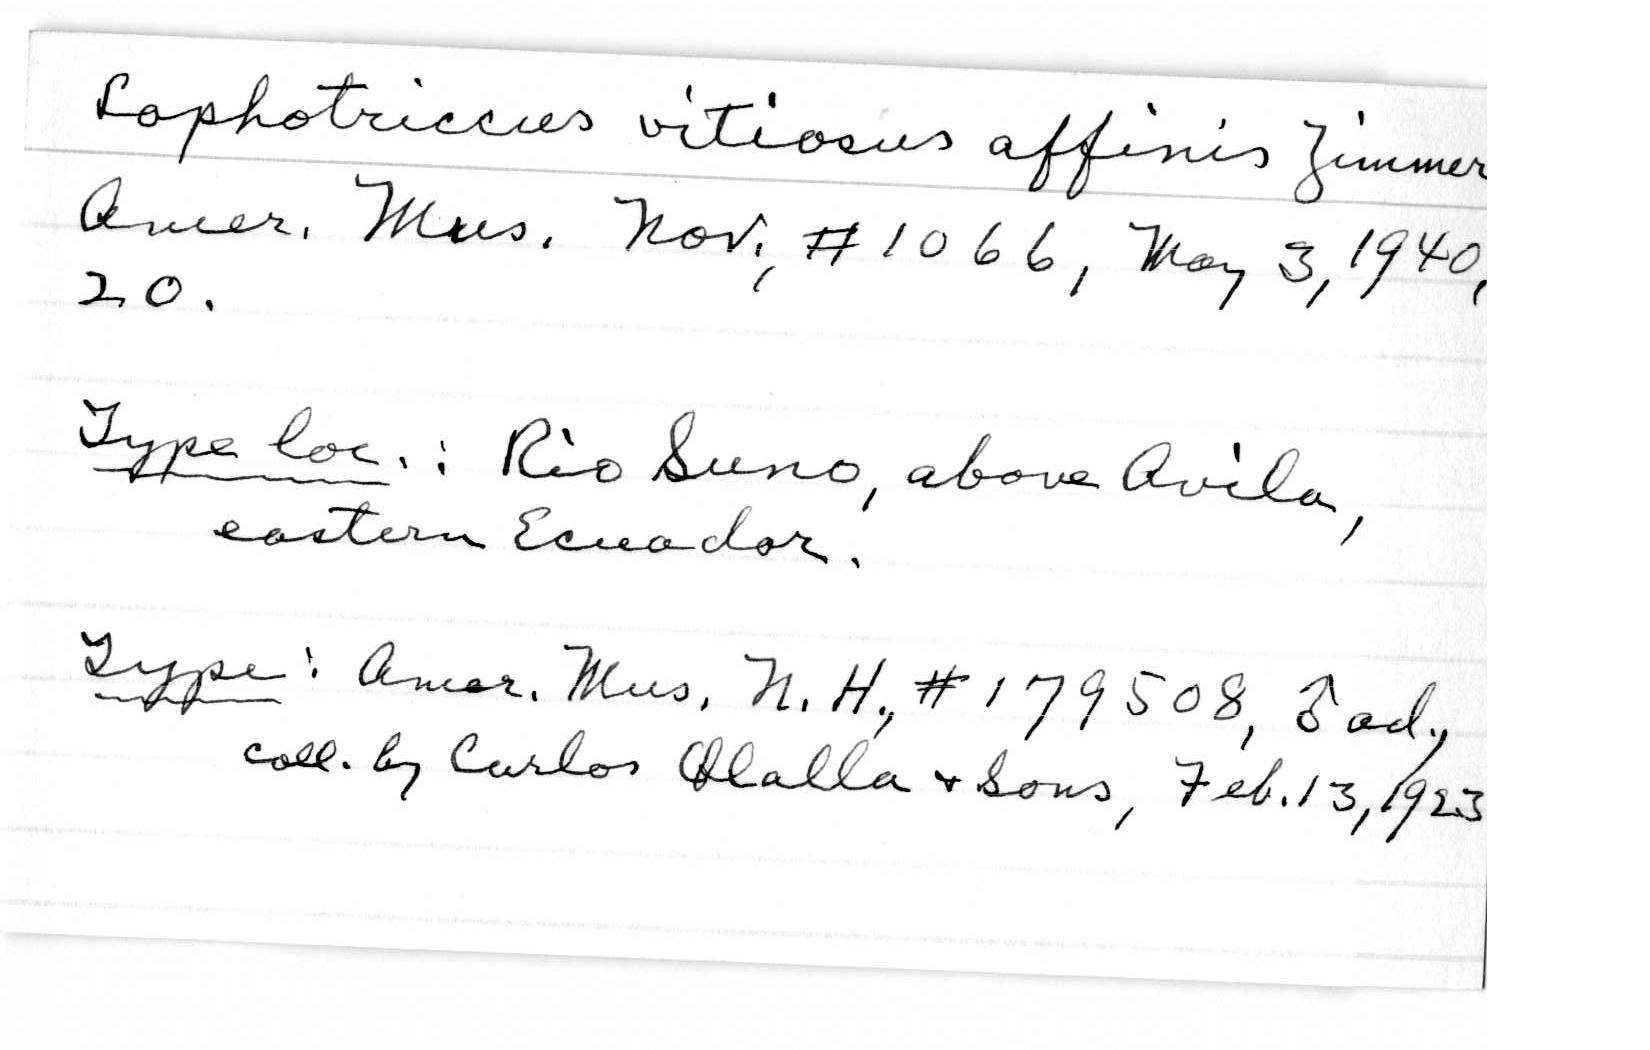 Lophotriccus vitiosus affinis Zimmer
Amer. Mus. Nov., #1066, May 3, 1940,
20.
Type loc.: Rio Suno, above Avila,
eastern Ecuador.
Type: Amer. Mus. N. H., #179508, ♂ ad.,
coll. by Carlos Olalla + Sons, Feb. 13, 1923